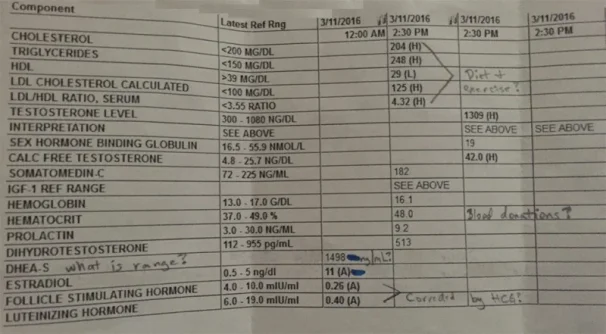 Component Latest Ref Rng 3/11/2016 3/11/2016 3/11/2016 3/11/2016
12:00 AM 2:30 PM 2:30 PM 2:30 PM
CHOLESTEROL <200 MG/DL 204 (H)
TRIGLYCERIDES <150 MG/DL 248 (H)
HDL >39 MG/DL 29 (L) Diet +
LDL CHOLESTEROL CALCULATED <100 MG/DL 125 (H) exercise?
LDL/HDL RATIO, SERUM <3.55 RATIO 4.32 (H)
TESTOSTERONE LEVEL 300 - 1080 NG/DL 1309 (H)
INTERPRETATION SEE ABOVE SEE ABOVE SEE ABOVE
SEX HORMONE BINDING GLOBULIN 16.5 - 55.9 NMOL/L 19
CALC FREE TESTOSTERONE 4.8 - 25.7 NG/DL 42.0 (H)
SOMATOMEDIN-C 72 - 225 NG/ML 182
IGF-1 REF RANGE SEE ABOVE
HEMOGLOBIN 13.0 - 17.0 G/DL 16.1
HEMATOCRIT 37.0 - 49.0 % 48.0 Blood donations?
PROLACTIN 3.0 - 30.0 NG/ML 9.2
DIHYDROTESTOSTERONE 112 - 955 pg/mL 513
DHEA-S what is range? 1498 ng/mL?
ESTRADIOL 0.5 - 5 ng/dl 11 (A)
FOLLICLE STIMULATING HORMONE 4.0 - 10.0 mIU/ml 0.26 (A)
LUTEINIZING HORMONE 6.0 - 19.0 mIU/ml 0.40 (A) by HCG?